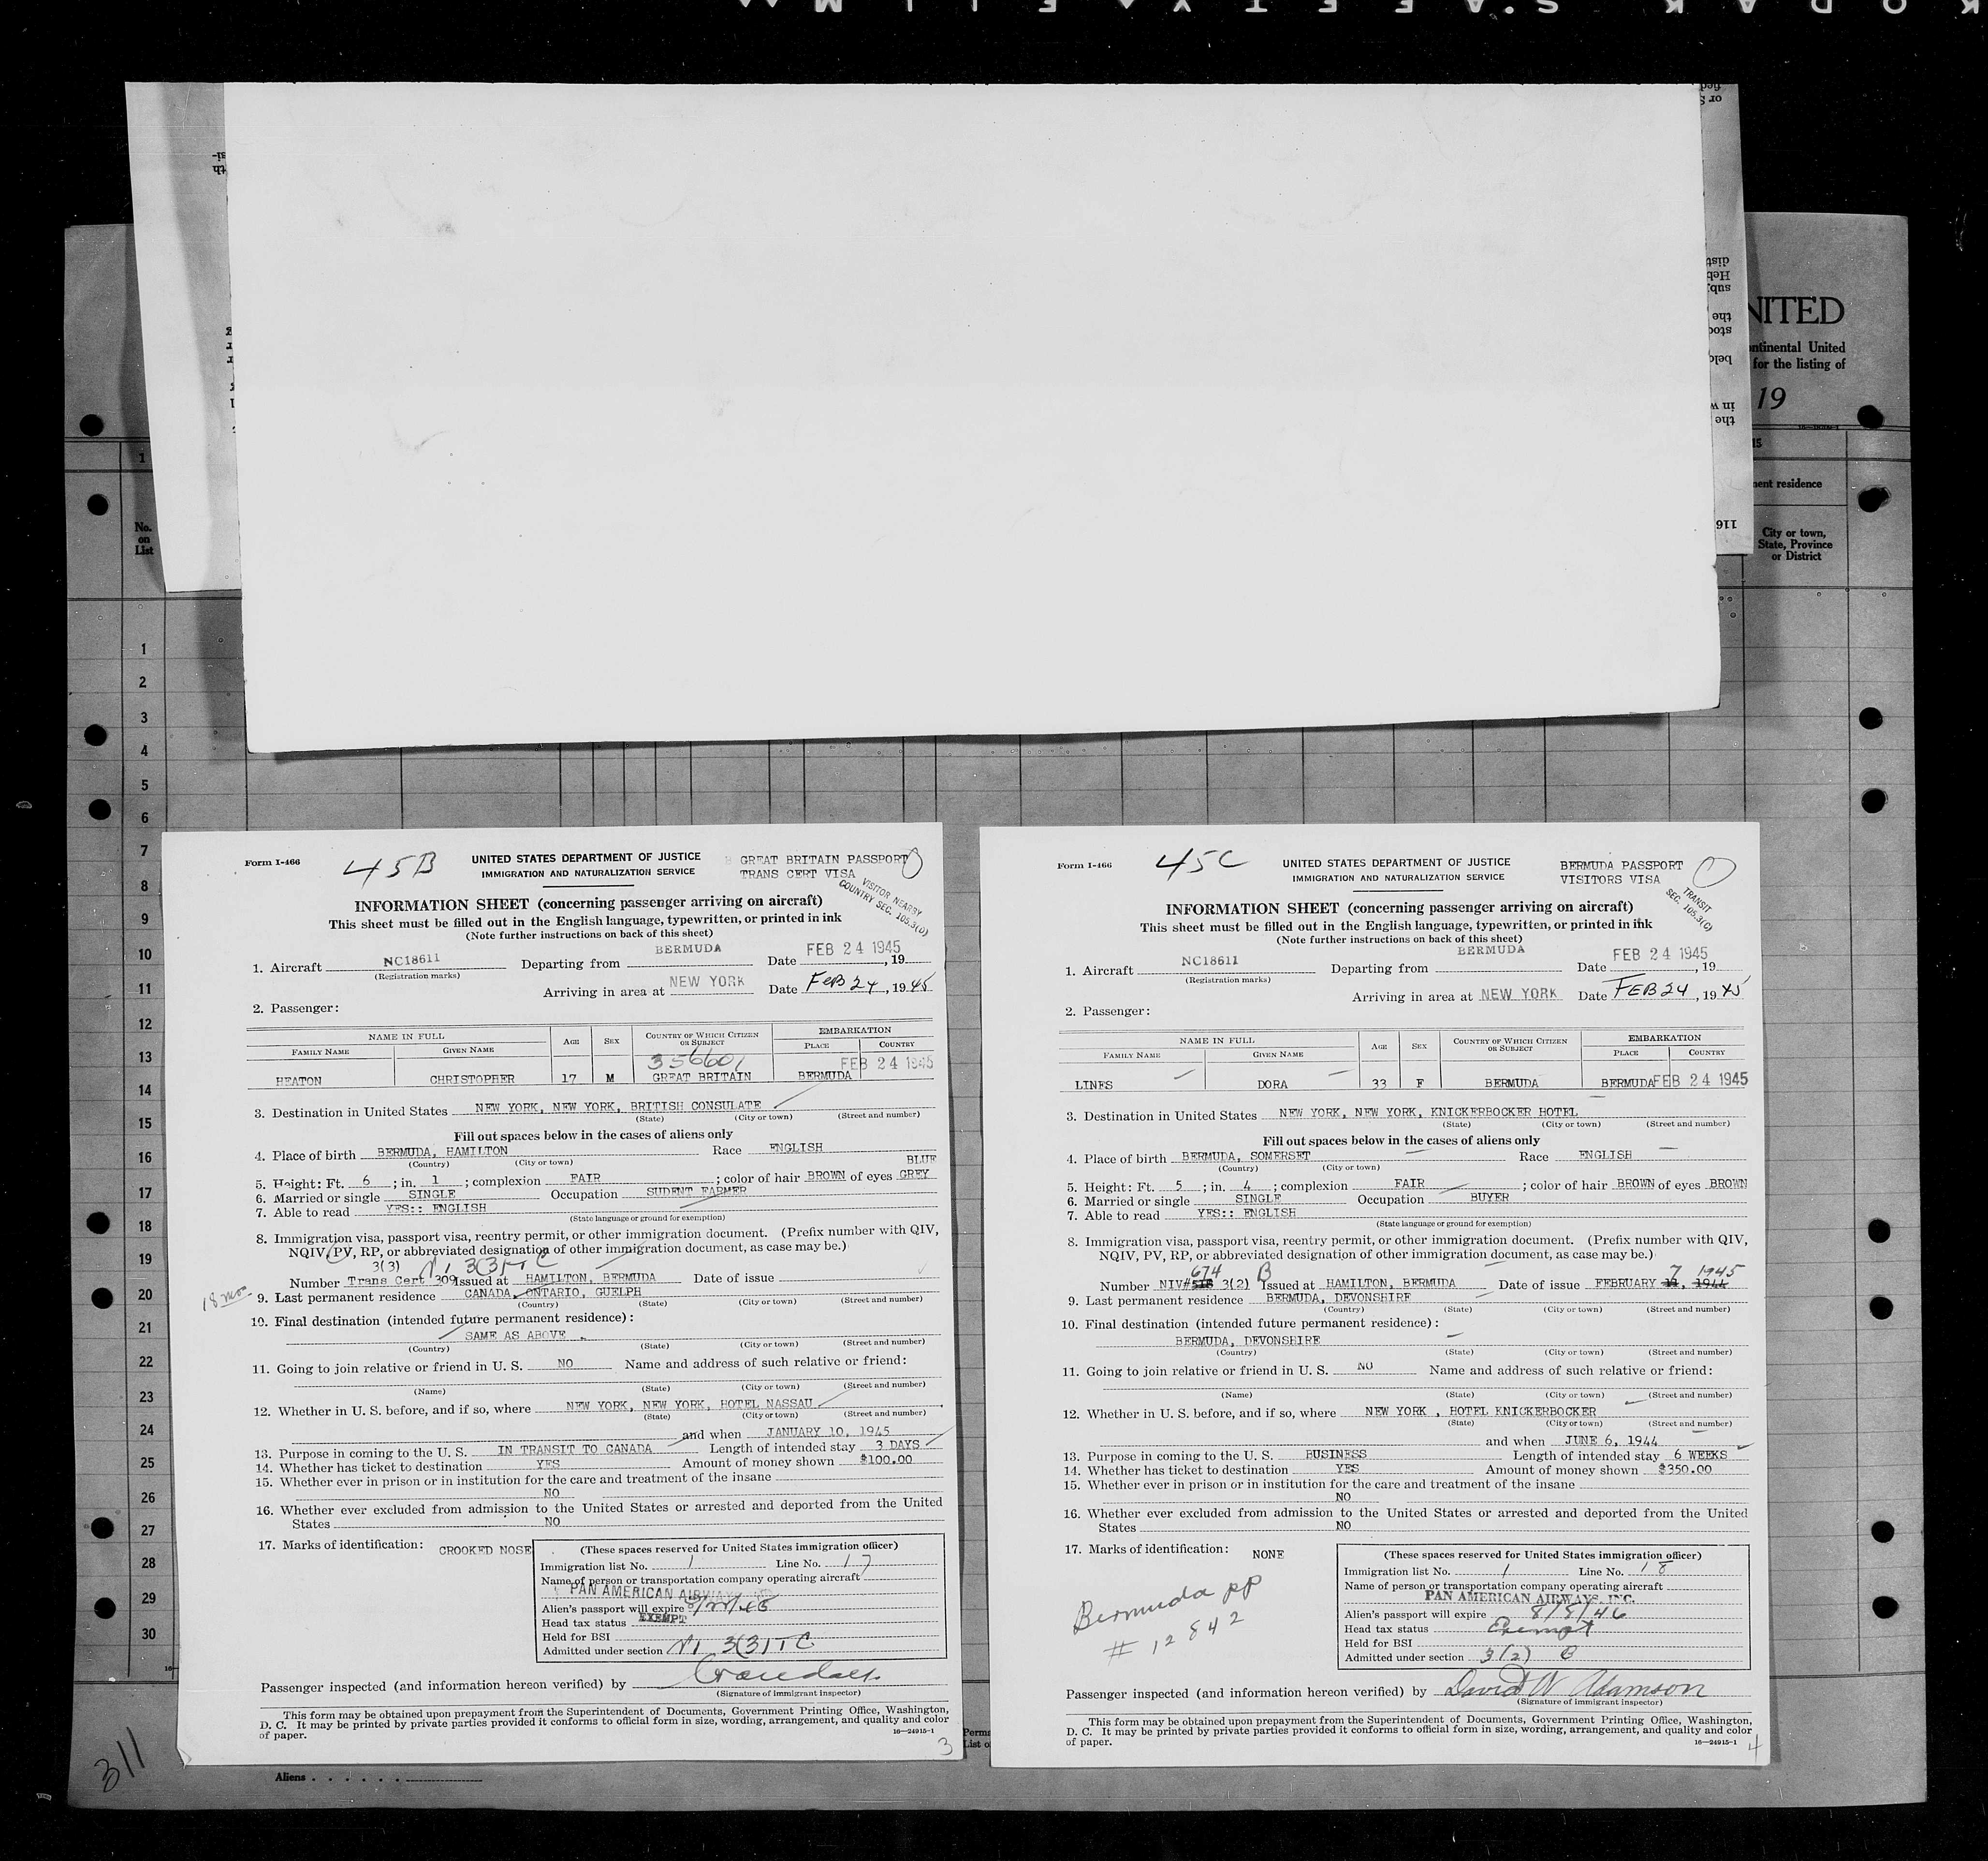 KODAK S.A.F.E.T.Y. FILM
NITED
ontinental United
for the listing of
19
nent residence
City or town,
State, Province
or District
No.
on
List
1
1
2
3
4
5
6
7
8
9
10
11
12
13
14
15
16
17
18
19
20
21
22
23
24
25
26
27
28
29
30
311
Aliens
Form I-466
45B
UNITED STATES DEPARTMENT OF JUSTICE
IMMIGRATION AND NATURALIZATION SERVICE
GREAT BRITAIN PASSPORT
TRANS CERT VISA
VISITOR NEARBY
COUNTRY SEC. 105.3(D)
INFORMATION SHEET (concerning passenger arriving on aircraft)
This sheet must be filled out in the English language, typewritten, or printed in ink
(Note further instructions on back of this sheet)
1. Aircraft NC18611 Departing from BERMUDA Date FEB 24 1945, 19
(Registration marks)
Arriving in area at NEW YORK Date FEB 24, 1945
2. Passenger:
NAME IN FULL AGE SEX COUNTRY OF WHICH CITIZEN OR SUBJECT EMBARKATION
FAMILY NAME GIVEN NAME PLACE COUNTRY
356601 FEB 24 1945
HEATON CHRISTOPHER 17 M GREAT BRITAIN BERMUDA
3. Destination in United States NEW YORK, NEW YORK, BRITISH CONSULATE
(State) (City or town) (Street and number)
Fill out spaces below in the cases of aliens only
4. Place of birth BERMUDA, HAMILTON Race ENGLISH
(Country) (City or town)
BLUE
5. Height: Ft. 6 ; in. 1 ; complexion FAIR ; color of hair BROWN of eyes GREY
6. Married or single SINGLE Occupation SUDENT FARMER
7. Able to read YES:: ENGLISH
(State language or ground for exemption)
8. Immigration visa, passport visa, reentry permit, or other immigration document. (Prefix number with QIV,
NQIV, PV, RP, or abbreviated designation of other immigration document, as case may be.)
3(3) 3(3) TC
Number Trans Cert 309 Issued at HAMILTON, BERMUDA Date of issue
18 mos
9. Last permanent residence CANADA, ONTARIO, GUELPH
(Country) (State) (City or town) (Street and number)
10. Final destination (intended future permanent residence):
SAME AS ABOVE
(Country) (State) (City or town) (Street and number)
11. Going to join relative or friend in U. S. NO Name and address of such relative or friend:
(Name) (State) (City or town) (Street and number)
12. Whether in U. S. before, and if so, where NEW YORK, NEW YORK, HOTEL NASSAU
(State) (City or town) (Street and number)
and when JANUARY 10, 1945
13. Purpose in coming to the U. S. IN TRANSIT TO CANADA Length of intended stay 3 DAYS
14. Whether has ticket to destination YES Amount of money shown $100.00
15. Whether ever in prison or in institution for the care and treatment of the insane
NO
16. Whether ever excluded from admission to the United States or arrested and deported from the United
States NO
17. Marks of identification: CROOKED NOSE
(These spaces reserved for United States immigration officer)
Immigration list No. 1 Line No. 17
Name of person or transportation company operating aircraft
PAN AMERICAN AIRWAYS, INC.
Alien's passport will expire
Head tax status EXEMPT
Held for BSI
Admitted under section 3(3) TC
Passenger inspected (and information hereon verified) by
(Signature of immigrant inspector)
This form may be obtained upon prepayment from the Superintendent of Documents, Government Printing Office, Washington,
D. C. It may be printed by private parties provided it conforms to official form in size, wording, arrangement, and quality and color
of paper. 16—24915-1
3
Form I-466
45C
UNITED STATES DEPARTMENT OF JUSTICE
IMMIGRATION AND NATURALIZATION SERVICE
BERMUDA PASSPORT
VISITORS VISA
TRANSIT
SEC. 105.3(C)
INFORMATION SHEET (concerning passenger arriving on aircraft)
This sheet must be filled out in the English language, typewritten, or printed in ink
(Note further instructions on back of this sheet)
1. Aircraft NC18611 Departing from BERMUDA Date FEB 24 1945, 19
(Registration marks)
Arriving in area at NEW YORK Date FEB 24, 1945
2. Passenger:
NAME IN FULL AGE SEX COUNTRY OF WHICH CITIZEN OR SUBJECT EMBARKATION
FAMILY NAME GIVEN NAME PLACE COUNTRY
LINES DORA 33 F BERMUDA BERMUDA FEB 24 1945
3. Destination in United States NEW YORK, NEW YORK, KNICKERBOCKER HOTEL
(State) (City or town) (Street and number)
Fill out spaces below in the cases of aliens only
4. Place of birth BERMUDA, SOMERSET Race ENGLISH
(Country) (City or town)
5. Height: Ft. 5 ; in. 4 ; complexion FAIR ; color of hair BROWN of eyes BROWN
6. Married or single SINGLE Occupation BUYER
7. Able to read YES:: ENGLISH
(State language or ground for exemption)
8. Immigration visa, passport visa, reentry permit, or other immigration document. (Prefix number with QIV,
NQIV, PV, RP, or abbreviated designation of other immigration document, as case may be.)
674 B 7 1945
Number NIV# 3(2) Issued at HAMILTON, BERMUDA Date of issue FEBRUARY , 1944
9. Last permanent residence BERMUDA, DEVONSHIRE
(Country) (State) (City or town) (Street and number)
10. Final destination (intended future permanent residence):
BERMUDA, DEVONSHIRE
(Country) (State) (City or town) (Street and number)
11. Going to join relative or friend in U. S. NO Name and address of such relative or friend:
(Name) (State) (City or town) (Street and number)
12. Whether in U. S. before, and if so, where NEW YORK , HOTEL KNICKERBOCKER
(State) (City or town) (Street and number)
and when JUNE 6, 1944
13. Purpose in coming to the U. S. BUSINESS Length of intended stay 6 WEEKS
14. Whether has ticket to destination YES Amount of money shown $350.00
15. Whether ever in prison or in institution for the care and treatment of the insane
NO
16. Whether ever excluded from admission to the United States or arrested and deported from the United
States NO
17. Marks of identification: NONE
Bermuda pp
# 12842
(These spaces reserved for United States immigration officer)
Immigration list No. 1 Line No. 18
Name of person or transportation company operating aircraft
PAN AMERICAN AIRWAYS, INC.
Alien's passport will expire 8/5/46
Head tax status Exempt
Held for BSI
Admitted under section 3(2) B
Passenger inspected (and information hereon verified) by David W Adamson
(Signature of immigrant inspector)
This form may be obtained upon prepayment from the Superintendent of Documents, Government Printing Office, Washington,
D. C. It may be printed by private parties provided it conforms to official form in size, wording, arrangement, and quality and color
of paper. 16—24915-1
4